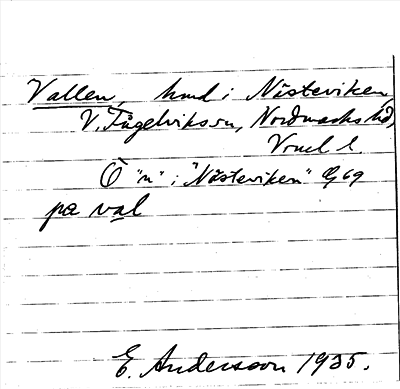 Vallen, hmd i Nästeviken,
V. Fågelviks sn, Nordmarks hd,
Vrml l.
Ö "n" i "Nästeviken" Eg 69
på val
E. Andersson 1935.